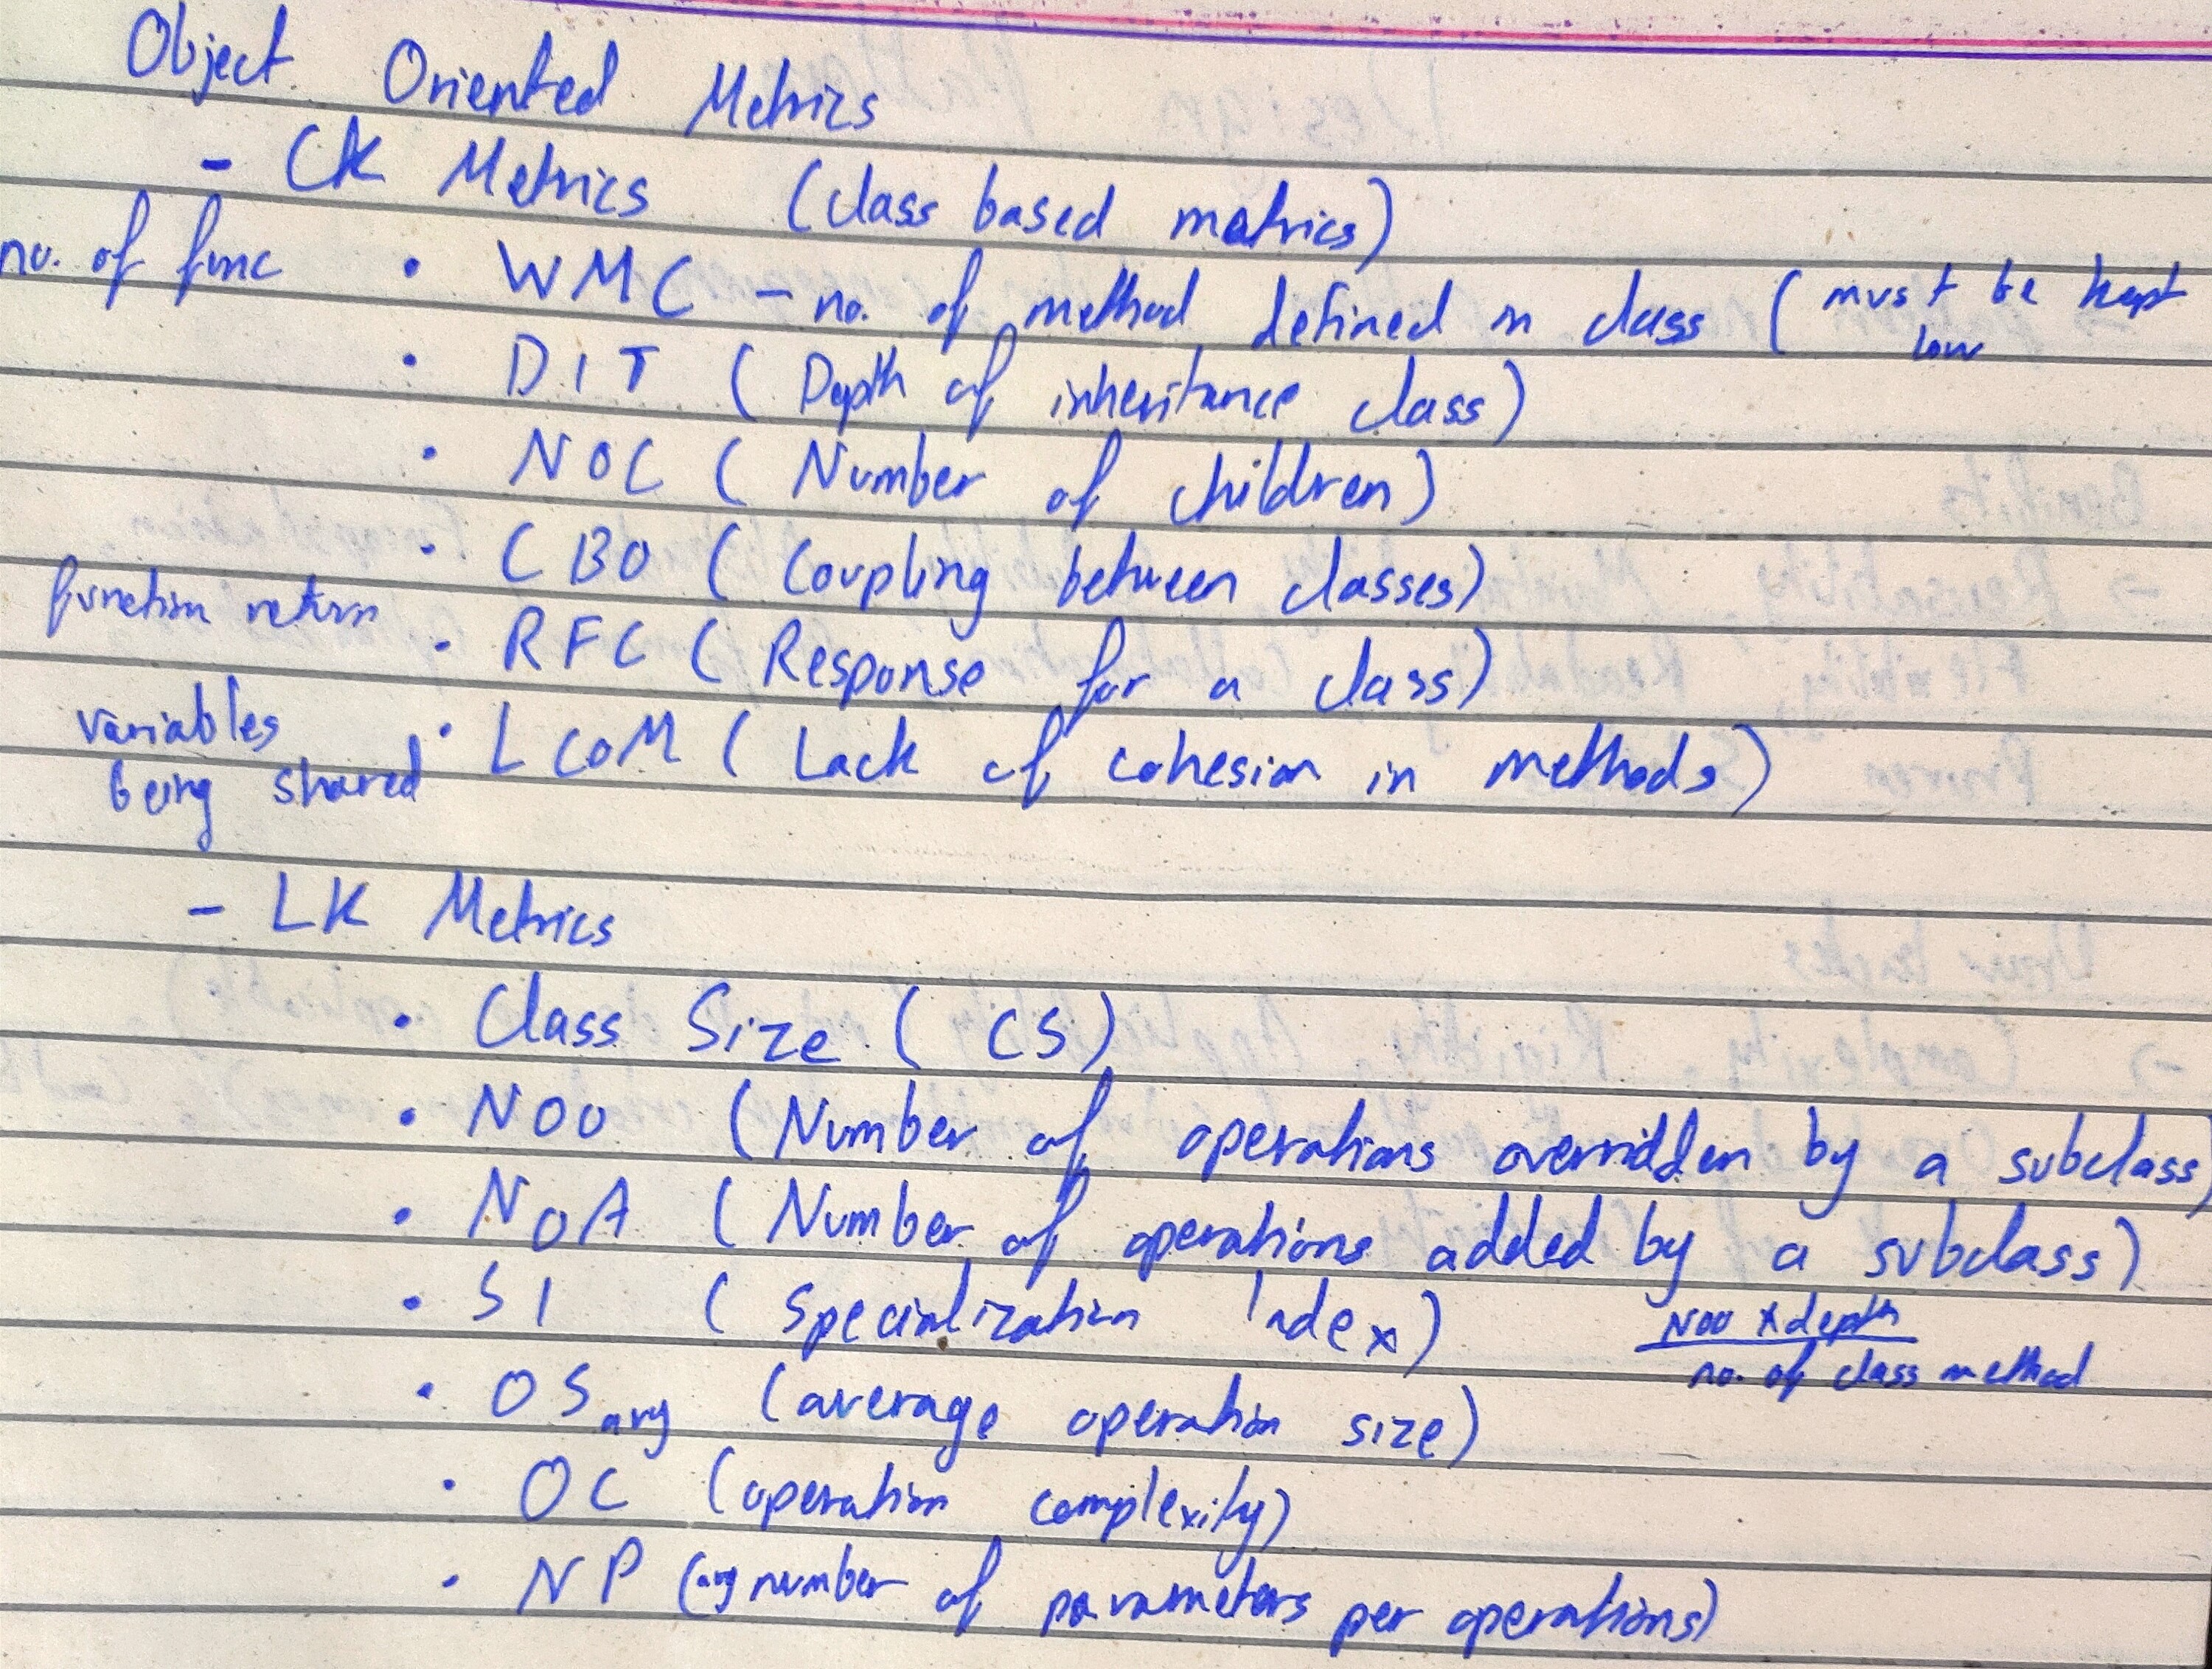 Object Oriented Metrics
- CK Metrics (class based metrics)
no. of func • WMC - no. of method defined in class (must be kept low
• DIT (Depth of inheritance class)
• NOC (Number of children)
• CBO (Coupling between classes)
function return • RFC (Response for a class)
variables being shared • LCOM (Lack of cohesion in methods)
- LK Metrics
• Class Size (CS)
• NOO (Number of operations overridden by a subclass)
• NOA (Number of operations added by a subclass)
• SI (Specialization Index) NOO x depth
no. of class method
• OS avg (average operation size)
• OC (operation complexity)
• NP (avg number of parameters per operations)